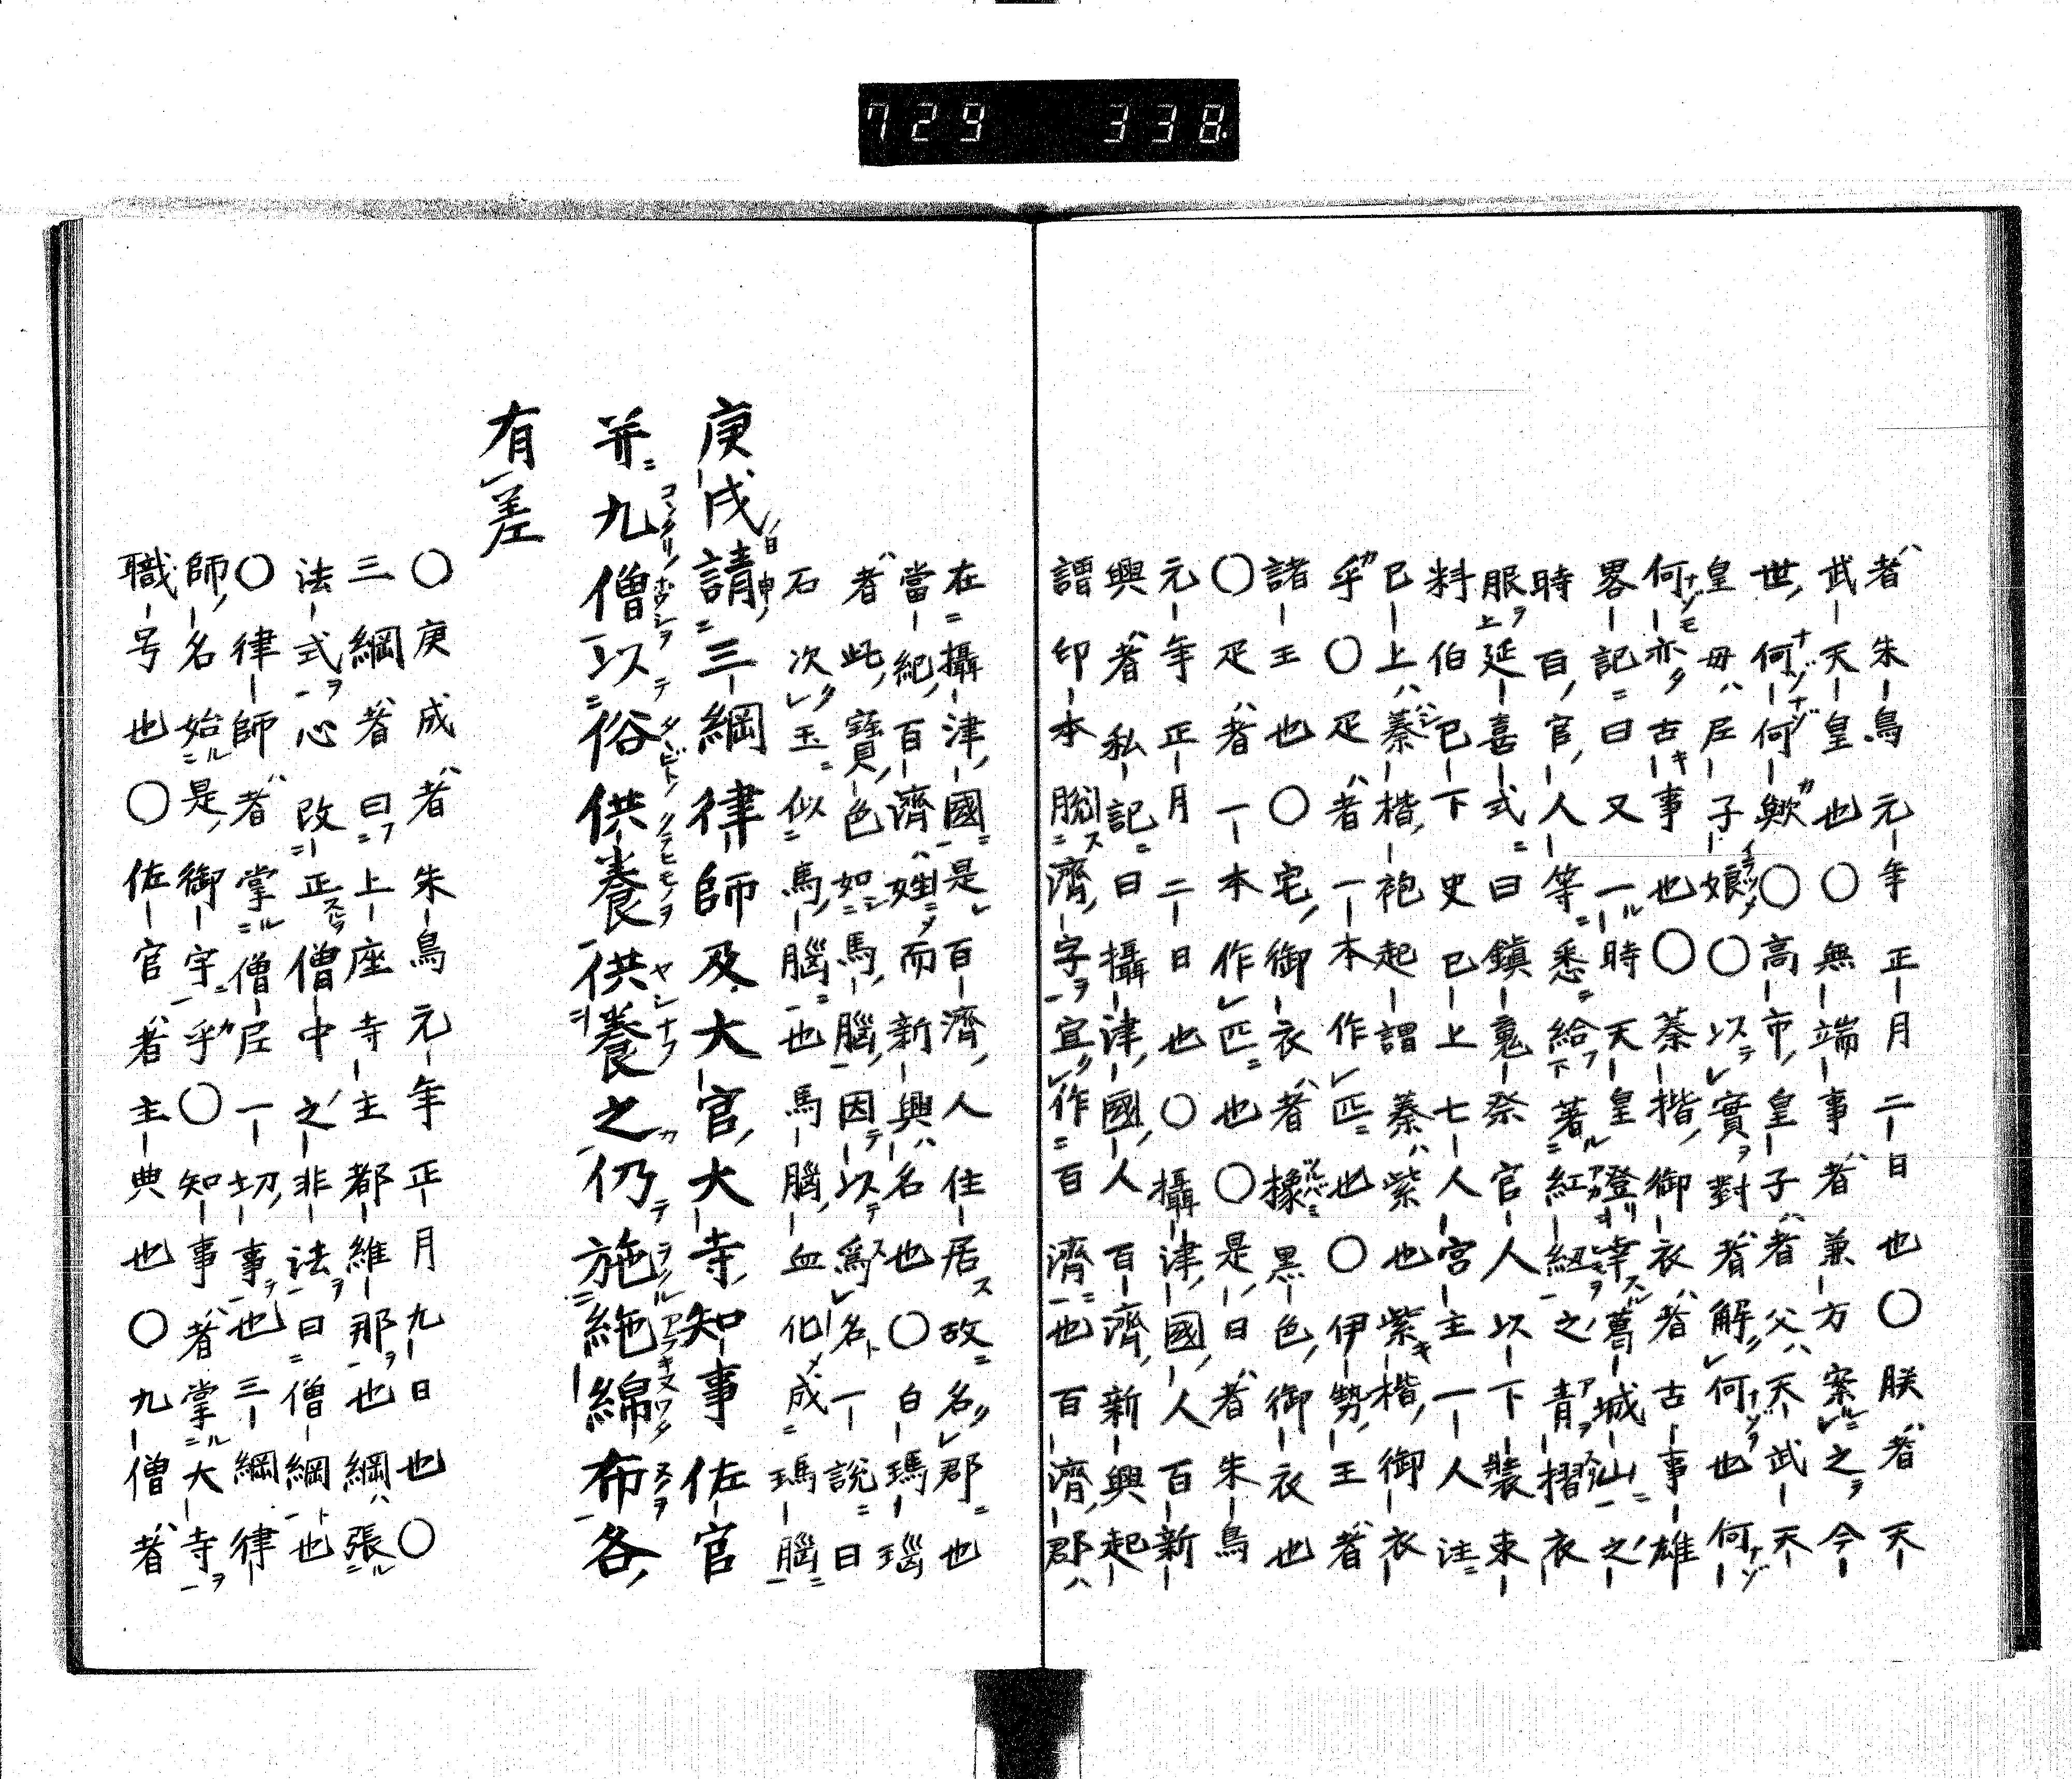 729 338
者朱鳥元年正月二日也〇朕者天
武天皇也〇無端事者兼方案之今
世何何歟〇高市皇子者父天武天
皇母尼子娘〇以實對者解何也何
何亦古事也〇蓁揩御衣者古事雄
畧記曰又一時天皇登幸葛城山之
時百官人等悉給著紅紐之青摺衣
服延喜式曰鎮䰟祭官人以下裝束
料伯已下史已上七人宮主一人注
已上蓁楷袍起謂蓁紫也紫楷御衣
乎〇疋者一本作匹也〇伊勢王者
諸王也〇宅御衣者橡黒色御衣也
〇疋者一本作匹也〇是日者朱鳥
元年正月二日也〇攝津國人百新
興者私記曰攝津國人百濟新興起
謂印本脫濟字宜作百濟也百濟郡
在攝津國是百濟人住居故名郡也
當紀百濟姓而新興名也〇白瑪瑙
者此寶色如馬腦因以爲名一説曰
石次玉似馬腦也馬腦血化成瑪腦
庚戌請三綱律師及大官大寺知事佐官
并九僧以俗供養供養之仍施絁綿布各
有差
〇庚戌者朱鳥元年正月九日也〇
三綱者上座寺主都維那也綱張
法式心曰改正僧中之非法曰僧綱也
〇律師者掌僧尼一切事也三綱律
師名始是御宇乎〇知事者掌大寺
職号也〇佐官者主典也〇九僧者